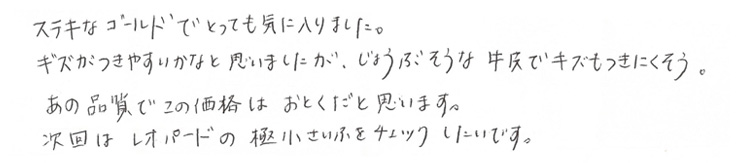 ステキなゴールドでとっても気に入りました。
キズがつきやすいかなと思いましたが、じょうぶそうな牛皮でキズもつきにくそう。
あの品質でこの価格はおとくだと思います。
次回はレオパードの極小さいふをチェックしたいです。